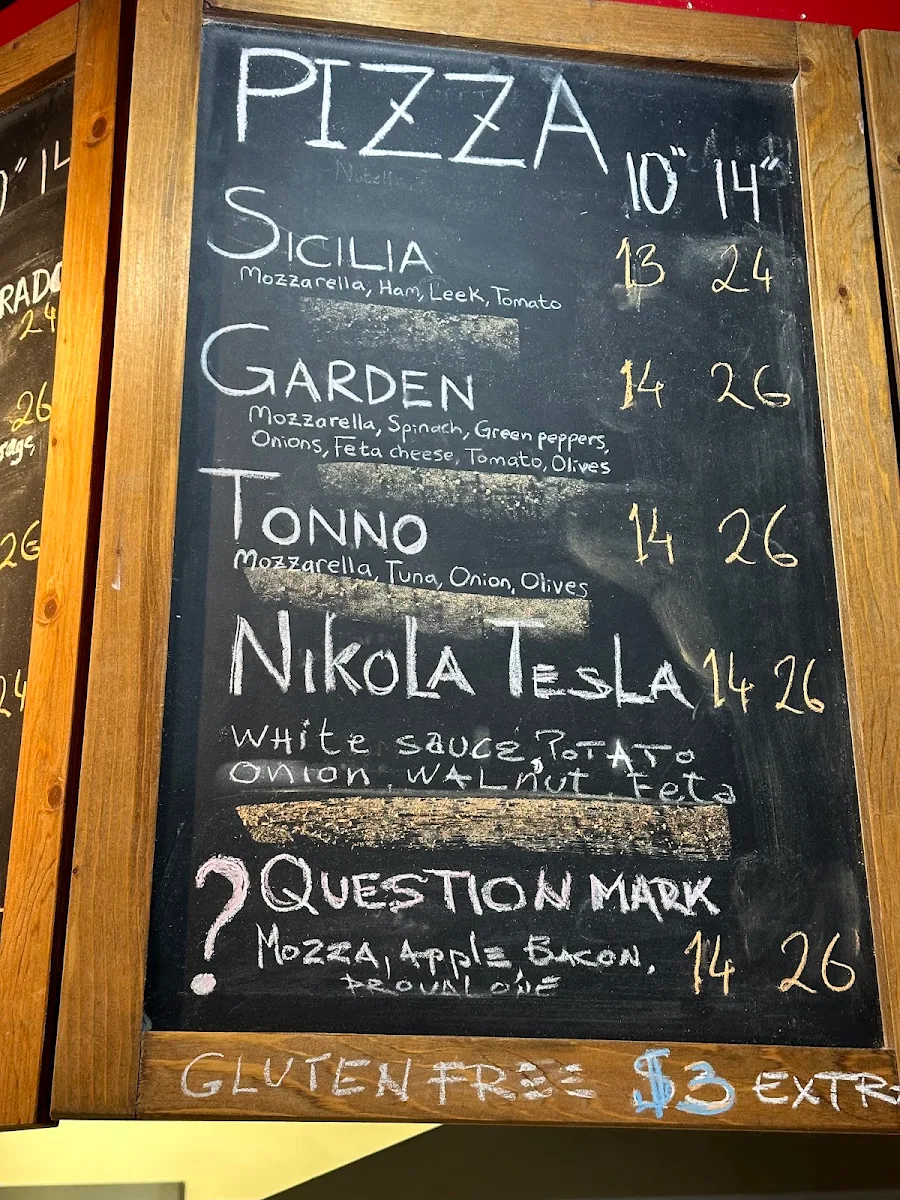 PIZZA
10" 14"
SICILIA 13 24
Mozzarella, Ham, Leek, Tomato
GARDEN 14 26
Mozzarella, Spinach, Green peppers,
Onions, Feta cheese, Tomato, Olives
TONNO 14 26
Mozzarella, Tuna, Onion, Olives
NikoLA TESLA 14 26
WHite SAUCE, POTATO
Onion, WALnut, Feta
? QUESTION MARK
MOZZA, Apple, BACON, 14 26
PROVALONE
GLUTEN FREE $3 EXTR
" 14
RADO
24
26
sage,
26
24